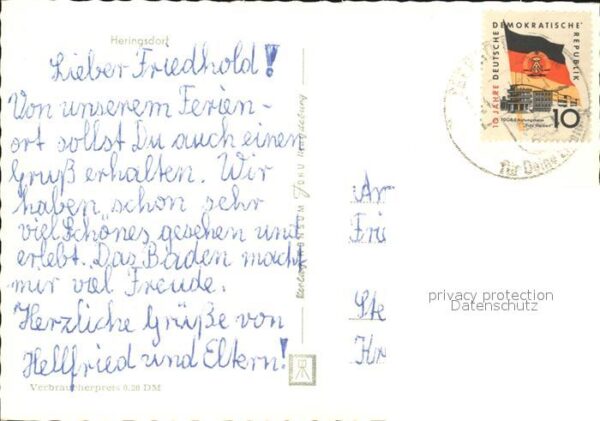 Heringsdorf
Lieber Friedhold!
Von unserem Ferien-
ort sollst Du auch einen
Gruß erhalten. Wir
haben schon sehr
viel Schönes gesehen und
erlebt. Das Baden macht
mir viel Freude.
Herzliche Grüße von
Hellfried und Eltern!
Verbraucherpreis 0,20 DM
KONSUM
10 JAHRE DEUTSCHE DEMOKRATISCHE REPUBLIK
10
Für Deine
An
Fri
Ste
Kr
privacy protection
Datenschutz